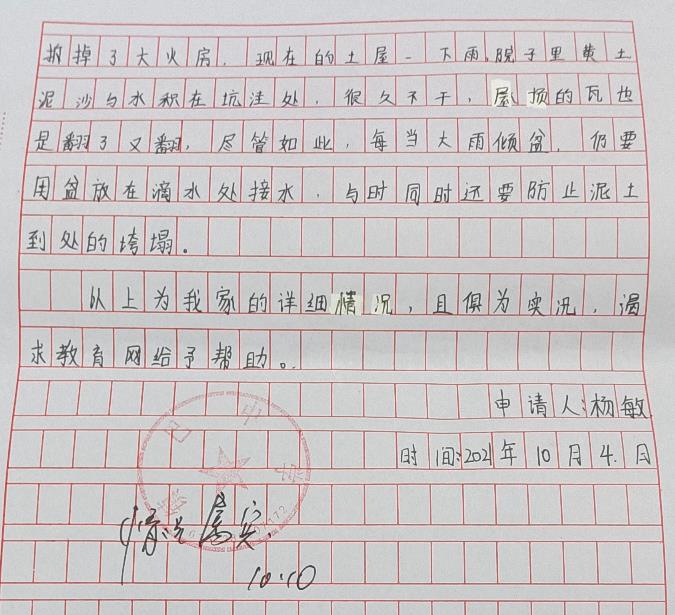 拆掉了大火房，现在的土屋一下雨，院子里黄土
泥沙与水积在坑洼处，很久不干，屋顶的瓦也
是翻了又翻，尽管如此，每当大雨倾盆，仍要
用盆放在滴水处接水，与时同时还要防止泥土
到处的垮塌。
以上为我家的详细情况，且俱为实况，渴
求教育网给予帮助。
申请人：杨敏
时间：2021年10月4.日
中
情况属实
10.10